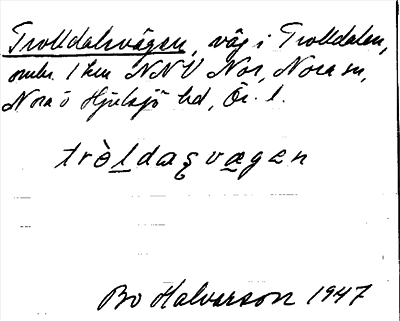 Trolldalsvägen, väg i Trolldalen,
omkr. 1 km NNV Nor, Nora sn,
Nora o Hjulsjö hd, Ör. l.
tròldaʂvægen
Bo Halvarson 1947